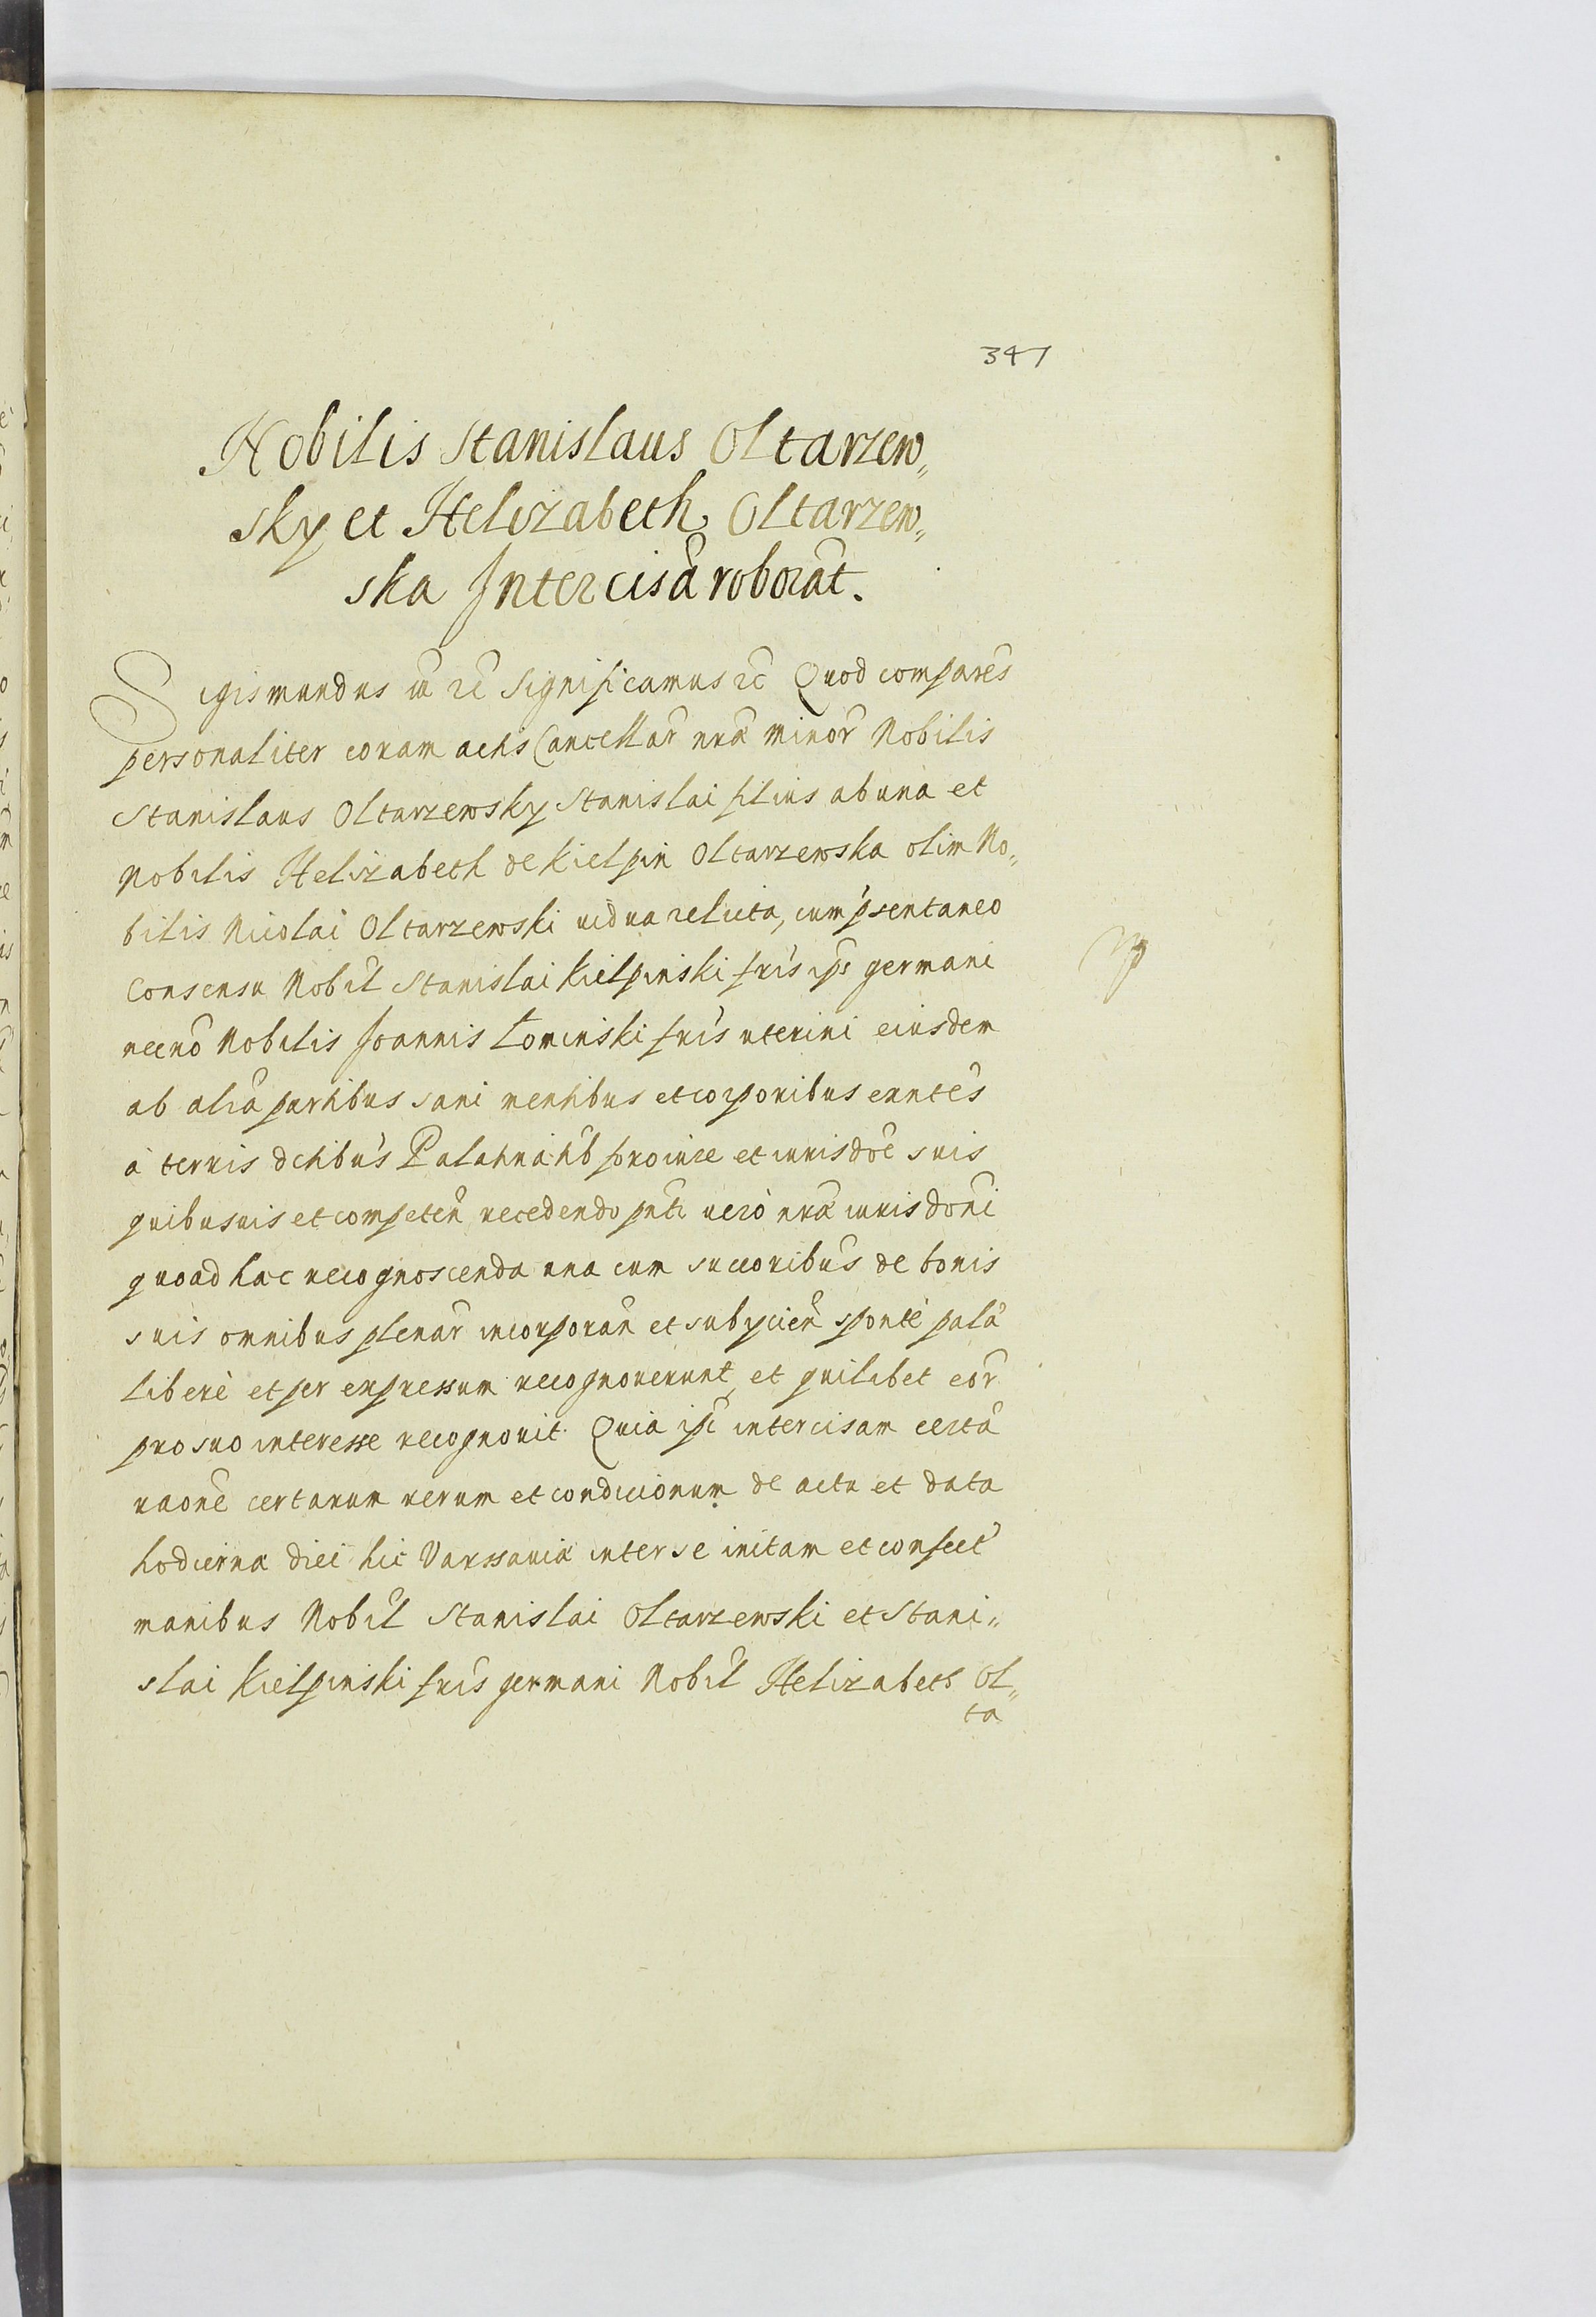 347
Nobilis Stanislaus Oltarzew„
sky et Helizabeth Oltarzew„
ska Intercisã roborãt.
Sigismundus iii rc̃ Significamus rc̃ Quod comparẽs
personaliter coram actis Cancellar̃ nrã minor̃ Nobilis
Stanislaus Oltarzewsky Stanislai filius ab una et
Nobilis Helizabeth de Kielpin Oltarzewska olim No„
bilis Nicolai Oltarzewski uidua relicta, cum p̃sentaneo
Consensu Nobil̃ Stanislai Kielpinski fris̃ ips̃ germani
necnõ Nobilis Joannis Lominski fris̃ uterini eiusdem
ab aliã partibus sani mentibus et corporibus exñtes
à terris dc̃tibus Palatinatib̃ proince et iurisdoẽ suis
quibusuis et competeñ recedendo pñti uerò nrã iurisdoñi
quoad hac recognoscenda una cum succoribũs de bonis
suis omnibus plenar̃ incorporañ et subycieñ sponte palã
liberè et per expressum recognouerunt, et quilibet eor̃
pro suo interesse recognouit. Quia ipĩ intercisam certã
raonẽ certarum rerum et condicionum de actu et data
hodierna diei hic Varssauiã inter se initam et confect̃
manibus Nobil̃ Stanislai Oltarzewski et Stani„
slai Kielpinski fris̃ germani Nobil̃ Helizabeth Ol„
ta